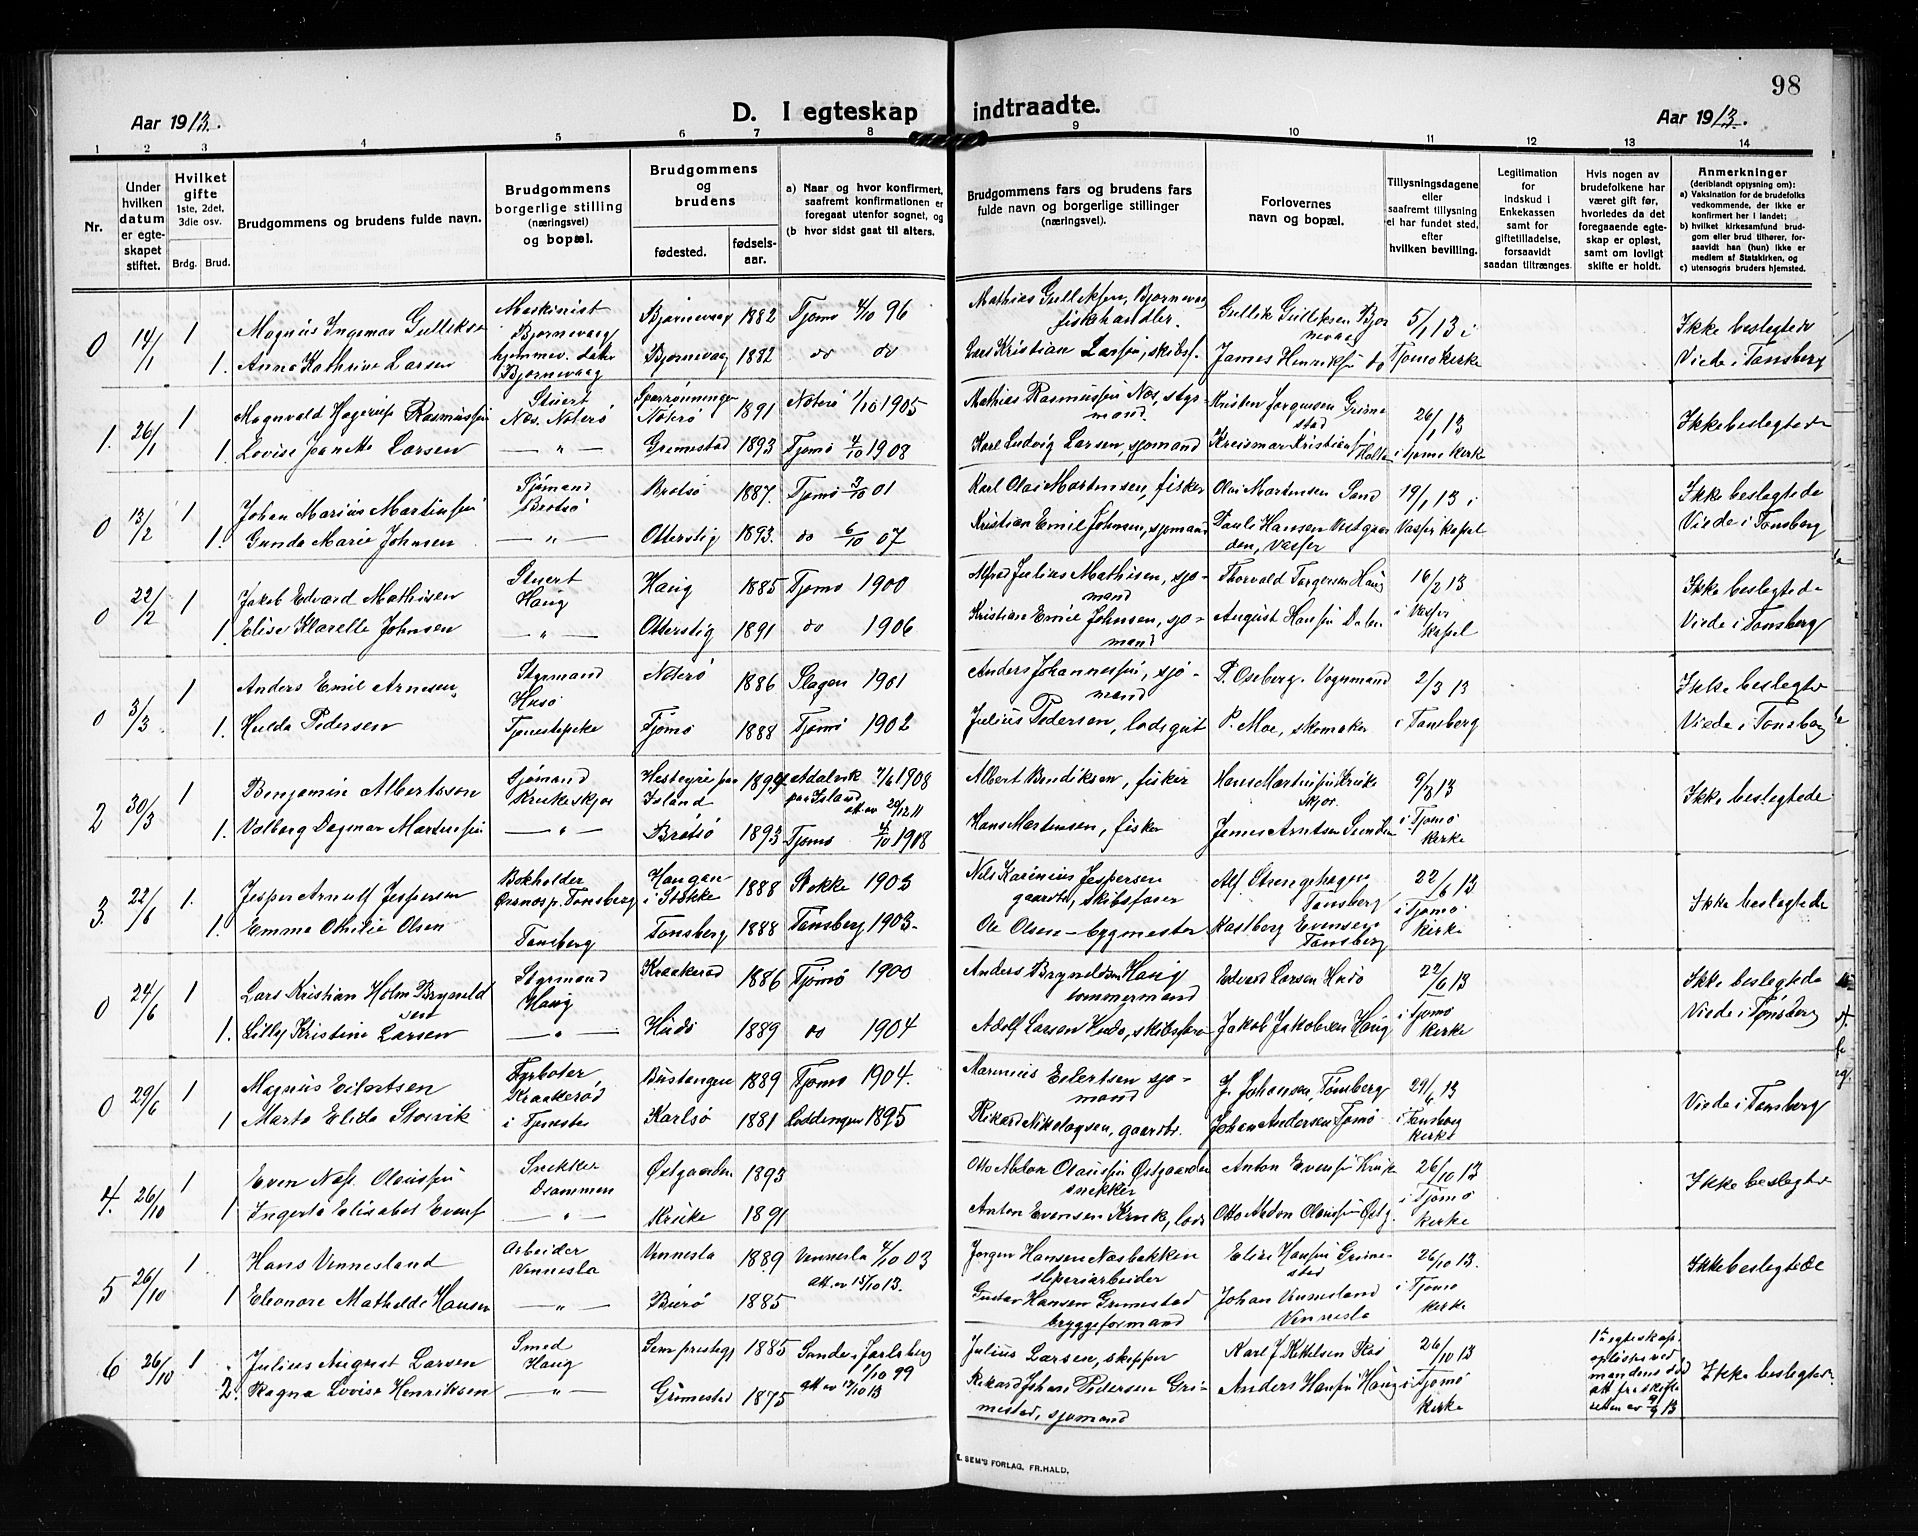 98
Aar 1913.
D. I egteskap indtraadte.
Aar 1913.
1 2 3 4 5 6 7 8 9 10 11 12 13 14
Nr.
Under hvilken datum er egteskapet stiftet.
Hvilket gifte 1ste, 2det, 3die osv.
Brdg. Brud.
Brudgommens og brudens fulde navn.
Brudgommens borgerlige stilling (næringsvei) og bopæl.
Brudgommens og brudens
fødested. fødselsaar.
a) Naar og hvor konfirmert, saafremt konfirmationen er foregaat utenfor sognet, og
(b hvor sidst gaat til alters.
Brudgommens fars og brudens fars fulde navn og borgerlige stillinger (næringsvei).
Forlovernes navn og bopæl.
Tillysningsdagene eller saafremt tillysning ei har fundet sted, efter hvilken bevilling.
Legitimation for indskud i Enkekassen samt for giftetilladelse, forsaavidt saadan tiltrænges.
Hvis nogen av brudefolkene har været gift før, hvorledes da det foregaaende egteskap er opløst, samt om lovligt skifte er holdt.
Anmerkninger (deriblandt opjysning om):
a) Vaksination for de brudefolks vedkommende, der ikke er konfirmert her i landet;
b) hvilket kirkesamfund brudgom eller brud tilhører, forsaavidt han (hun) ikke er medlem af Statskirken, og
c) utensogns bruders hjemsted.
0 14/1 1 Magnus Ingemar Gulliksen Maskinist Bjørnevaag Bjørnevaag 1882 Tjømø 4/10 96 Mathias Gulliksen, Bjørnevaag fiskhandler. Gullik Gulliksen Bjørnevaag 5/1 13 i Ikke beslegtede
1. Anna Kathrine Larsen hjemmev. datter Bjørnevaag Bjørnevaag 1882 do do Lars Kristian Larsen, skibsf. James Henriksen do Tjømø kirke Viede i Tønsberg
1. 26/1 1 Magnvald Hagerup Rasmussen Stuert Næs. Nøterø Nøterø 1891 Nøterø 1/10 1905 Mathias Rasmussen Næs, styrmand. Kristen Jørgensen Grimestad 26/1 13 Ikke beslegtede
1. Lovise Jeanette Larsen — " — Grimestad 1893 Tjømø 4/10 1908 Karl Ludvig Larsen, sjømand Kristiansen Holte i Tjømø kirke
0 13/2 1 Johan Marius Martinsen Sjømand Brøtsø Brøtsø 1887. Tjømø 3/10 01 Karl Olai Martensen, fisker Olai Martensen Sand 19/1 13 i Ikke beslegtede
1. Gunda Marie Johnsen — " — Otterstig 1893. do 6/10 07 Kristian Emil Johnsen, sjømand Pauli Hansen Vestgaarden, Vasser Vasser kapel Viede i Tønsberg
0 22/2 1 Jakob Edvard Mathisen Stuert Haug Haug 1885 Tjømø 1900 Alfred Julius Mathisen, sjømand Thorvald Torgersen Haug 16/2 13 Ikke beslegtede
1. Elise Klarelle Johnsen — " — Otterstig 1891 do 1906 Kristian Emil Johnsen, sjømand August Hansen Dalen i Vasser kapel Viede i Tønsberg
0 3/3 1 Anders Emil Arnesen Styrmand Husø Nøterø 1886 Slagen 1901 Anders Johannessen, sjømand P. Oseberg, Vognmand 2/3 13 Ikke beslegtede
1. Hulda Pedersen Tjenestepike Tjømø 1888 Tjømø 1902 Julius Pedersen, lodsgut P. Moe, skomaker i Tønsberg Viede i Tønsberg
2 30/3 1 Benjamin Albertsson Sjømand Krukeskjær Island Adalvik paa Island 7/6 1908 att. av 20/12 11 Albert Bendiksen, fisker Hans Martinsen Kruke skjær 9/3 13 Ikke beslegtede
1. Valborg Dagmar Martinsen — " — Brøtsø 1893 Tjømø 4/10 1908 Hans Martensen, fisker James Arntsen Sunden i Tjømø kirke
3. 22/6 1. Jesper Arnulf Jespersen Bokholder Ørsnes p. Tønsberg Haugan i Stokke 1888 Stokke 1903 Nils Karinius Jespersen gaardbr., skibsfører Alf Strengehagen Tønsberg 22/6 13 Ikke beslegtede
1. Emma Othilie Olsen Tønsberg Tønsberg 1888 Tønsberg 1903. Ole Olsen – bygmester Kastberg Evensen Tønsberg i Tjømø kirke
0 24/6 1 Lars Kristian Holm Bryneldsen Styrmand Haug Kraakerød 1886 Tjømø 1900 Anders Bryneldsen Haug tømmermand Edvard Larsen Hudø 22/6 13 Ikke beslegtede
1. Lilly Kristine Larsen — " — Hudø 1889 do 1904 Adolf Larsen Hudø, skibsfører Jakob Jakobsen Haug i Tjømø kirke Viede i Tønsberg
0 29/6 1 Magnus Eilertsen Fyrbøter Kraakerød Bustangen 1889 Tjømø 1904. Marinius Eilertsen sjømand J. Johansen, Tønsberg 29/6 13 Viede i Tønsberg
1 Marta Elida Storvik i Tjeneste Karlsø 1881 Loddingen 1895 Rikard Nikolaysen, gaardbr. Johan Andersen Tjømø i Tønsberg kirke
4. 26/10 1 Even Næss Olaussen Snekker Drammen Østgaarden 1893 Otto Abdon Olaussen Østgaarden snekker Anton Evensen Kruke 26/10 13 Ikke beslegtede
1 Ingerta Elisabet Evensen — " — Kruke 1891 Anton Evensen Kruke, lods Otto Abdon Olaussen Østg. i Tjømø kirke
5 26/10 1 Hans Vennesland Arbeider Vennesla Vennesla 1889 Vennesla 4/10 03 att. av 15/10 13. Jørgen Hansen Næsbakken sliperiarbeider Elise Hansen Grimestad 26/10 13. Ikke beslegtede
1 Eleonore Mathilde Hansen — " — Buerø 1885 Gustav Hansen Grimestad bryggeformand Johan Vennesland Vennesla i Tjømø kirke
6 26/10 1 Julius August Larsen Smed Haug Sem prestegj 1885 Sande i Jarlsberg 1/10 99 att av 17/10 13 Julius Larsen, skipper Karl J Kittelsen 26/10 13 1ste egteskap opløst ved mandens død att fra skifteretten av 9/9 13 Ikke beslegtede.
2. Ragna Lovise Henriksen — " — Grimestad 1875 Rikard Johan Pedersen Grimestad, sjømand Anders Hansen Haug i Tjømø kirke
E. SEM'S FORLAG, FR.HALD.